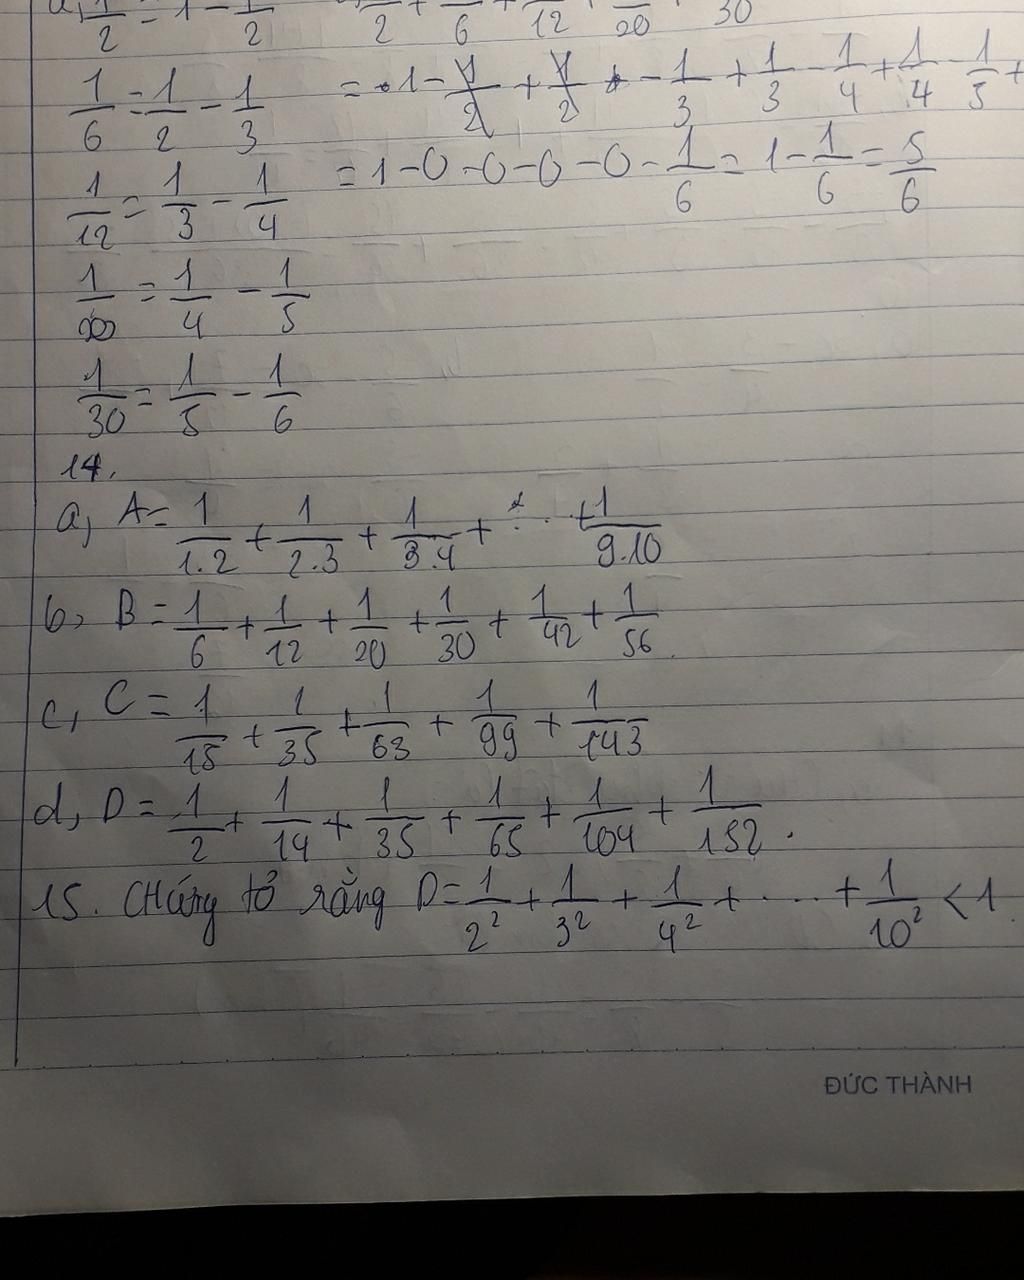 a, 1/2 = 1 - 1/2 1/2 + 1/6 + 1/12 + 1/20 + 1/30
1/6 = 1/2 - 1/3 = 1 - 1/2 + 1/2 - 1/3 + 1/3 - 1/4 + 1/4 - 1/5 +
1/12 = 1/3 - 1/4 = 1 - 0 - 0 - 0 - 0 - 1/6 = 1 - 1/6 = 5/6
1/20 = 1/4 - 1/5
1/30 = 1/5 - 1/6
14.
a, A = 1/1.2 + 1/2.3 + 1/3.4 + ... + 1/9.10
b, B = 1/6 + 1/12 + 1/20 + 1/30 + 1/42 + 1/56
c, C = 1/15 + 1/35 + 1/63 + 1/99 + 1/143
d, D = 1/2 + 1/14 + 1/35 + 1/65 + 1/104 + 1/152.
15. Chứng tỏ rằng D = 1/2² + 1/3² + 1/4² + ..... + 1/10² < 1.
ĐỨC THÀNH